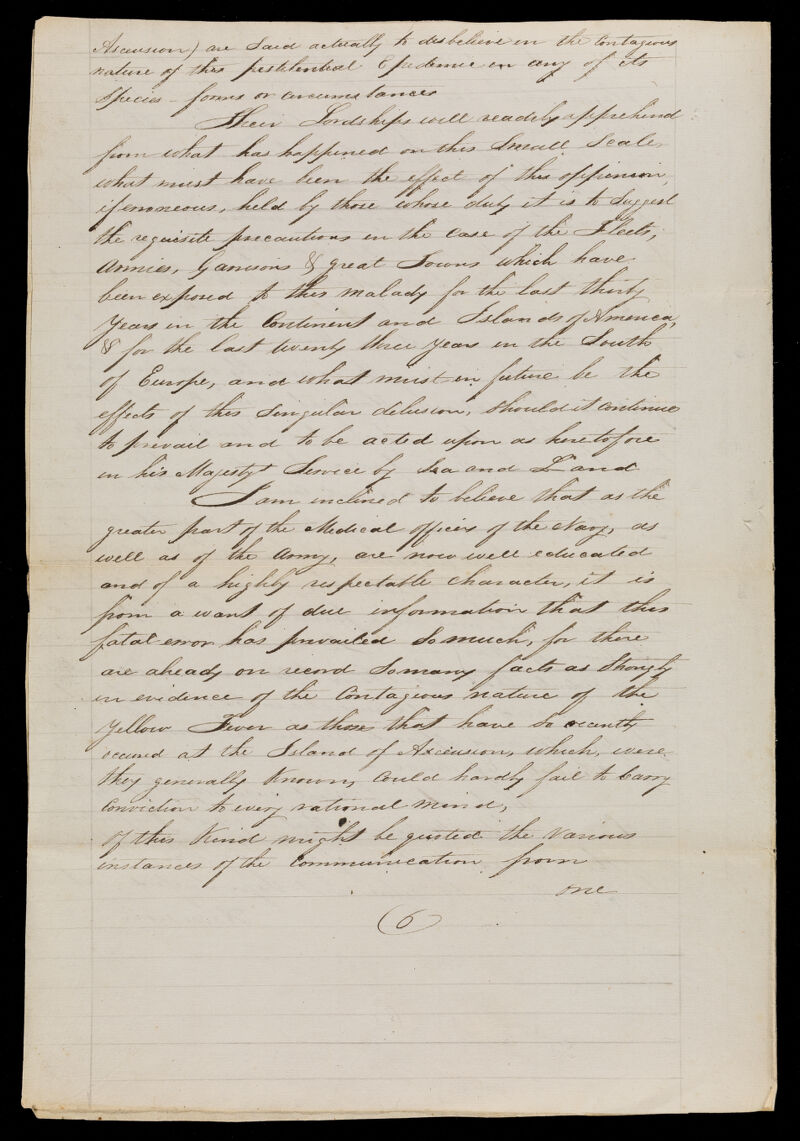 Ascension) are Said actually to disbelieve in the Contagious
nature of this pestilential Epidemic in any of its
Species – forms or circumstances
Their Lordships will readily apprehend
from what has happened on this Small Scale,
what must have been the effect of this oppinion,
if erroneous, held by those whose duty it is to Suggest
the requisite precautions in the Case of the Fleets,
Armies, Garrisons & great Towns which have
been exposed to this malady for the last thirty
Years in the Continent and Islands of America,
& for the last twenty three Years in the South
of Europe, and what must in future be the
effects of this Singular delusion, Should it Continue
to prevail and to be acted upon as heretofore
in his Majestys Service by Sea and Land
I am inclined to believe that as the
greater part of the Medical officers of the Navy, as
well as of the Army, are now well educated
and of a highly respectable Character, it is
from a want of due information that this
fatal error has prevailed So much, for there
are already on record So many facts as Strongly
in evidence of the Contagious nature of the
Yellow Fever as those that have So recently
occured at the Island of Ascension, which, were
they generally Known, Could hardly fail to Carry
Conviction to every rational mind,
of this Kind might be quoted the Various
instances of the Communication from
one
6